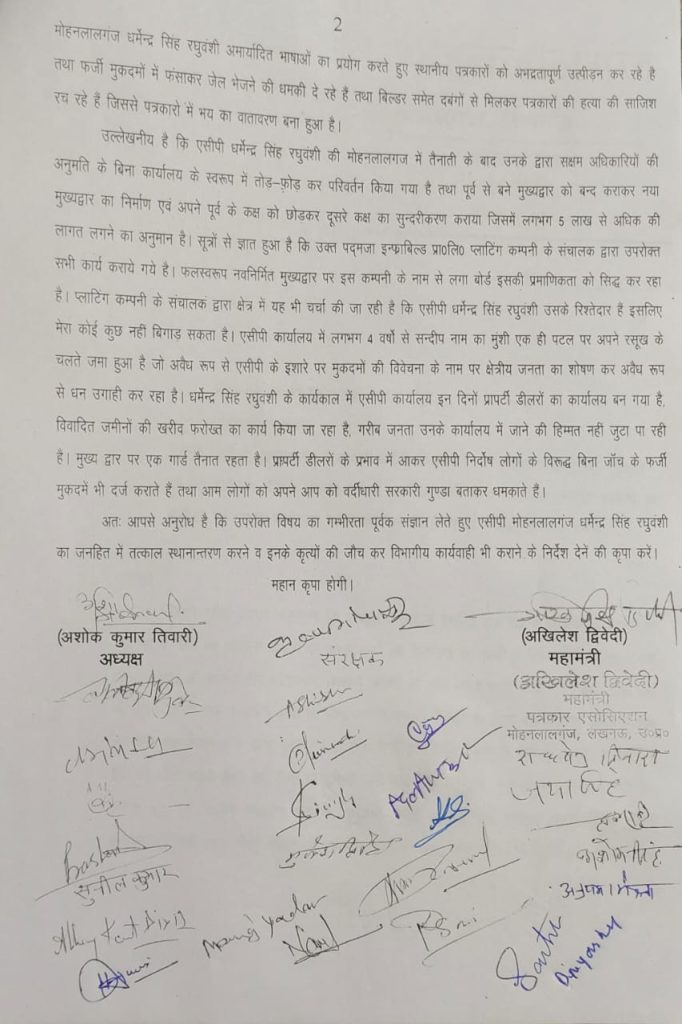 2
मोहनलालगंज धर्मेन्द्र सिंह रघुवंशी अमार्यादित भाषाओं का प्रयोग करते हुए स्थानीय पत्रकारों को अभद्रतापूर्ण उत्पीड़न कर रहे है
तथा फर्जी मुकदमों में फंसाकर जेल भेजने की धमकी दे रहे हैं तथा बिल्डर समेत दबंगों से मिलकर पत्रकारों की हत्या की साजिश
रच रहे हैं जिससे पत्रकारो में भय का वातावरण बना हुआ है।
उल्लेखनीय है कि एसीपी धर्मेन्द्र सिंह रघुवंशी की मोहनलालगज में तैनाती के बाद उनके द्वारा सक्षम अधिकारियों की
अनुमति के बिना कार्यालय के स्वरूप में तोड़-फ़ोड़ कर परिवर्तन किया गया है तथा पूर्व से बने मुख्यद्वार को बन्द कराकर नया
मुख्यद्वार का निर्माण एवं अपने पूर्व के कक्ष को छोड़कर दूसरे कक्ष का सुन्दरीकरण कराया जिसमें लगभग 5 लाख से अधिक की
लागत लगने का अनुमान है। सूत्रों से ज्ञात हुआ है कि उक्त पद्मजा इन्फ्राबिल्ड प्रा०लि० प्लाटिंग कम्पनी के संचालक द्वारा उपरोक्त
सभी कार्य कराये गये है। फलस्वरूप नवनिर्मित मुख्यद्वार पर इस कम्पनी के नाम से लगा बोर्ड इसकी प्रमाणिकता को सिद्ध कर रहा
है। प्लाटिंग कम्पनी के संचालक द्वारा क्षेत्र में यह भी चर्चा की जा रही है कि एसीपी धर्मेन्द्र सिंह रघुवंशी उसके रिश्तेदार है इसलिए
मेरा कोई कुछ नहीं बिगाड़ सकता है। एसीपी कार्यालय में लगभग 4 वर्षो से सन्दीप नाम का मुंशी एक ही पटल पर अपने रसूख के
चलते जमा हुआ है जो अवैध रूप से एसीपी के इशारे पर मुकदमों की विवेचना के नाम पर क्षेत्रीय जनता का शोषण कर अवैध रूप
से धन उगाही कर रहा है। धर्मेन्द्र सिंह रघुवंशी के कार्यकाल में एसीपी कार्यालय इन दिनों प्रापर्टी डीलरों का कार्यालय बन गया है,
विवादित जमीनों की खरीद फरोख्त का कार्य किया जा रहा है, गरीब जनता उनके कार्यालय में जाने की हिम्मत नहीं जुटा पा रही
है। मुख्य द्वार पर एक गार्ड तैनात रहता है। प्रापर्टी डीलरों के प्रभाव में आकर एसीपी निर्दोष लोगों के विरूद्ध बिना जॉच के फर्जी
मुकदमें भी दर्ज कराते हैं तथा आम लोगों को अपने आप को वर्दीधारी सरकारी गुण्डा बताकर धमकाते है।
अतः आपसे अनुरोध है कि उपरोक्त विषय का गम्भीरता पूर्वक संज्ञान लेते हुए एसीपी मोहनलालगंज धर्मेन्द्र सिंह रघुवंशी
का जनहित में तत्काल स्थानान्तरण करने व इनके कृत्यों की जाँच कर विभागीय कार्यवाही भी कराने के निर्देश देनें की कृपा करें।
महान कृपा होगी।
(अशोक कुमार तिवारी)
अध्यक्ष
संरक्षक
(अखिलेश द्विवेदी)
महामंत्री
(अखिलेश द्विवेदी)
महामंत्री
पत्रकार एसोसिएशन
मोहनलालगंज, लखनऊ, उ०प्र०
Ashish
Singh
सुनील कुमार
Abhay Kant Dixit
Manoj Yadav